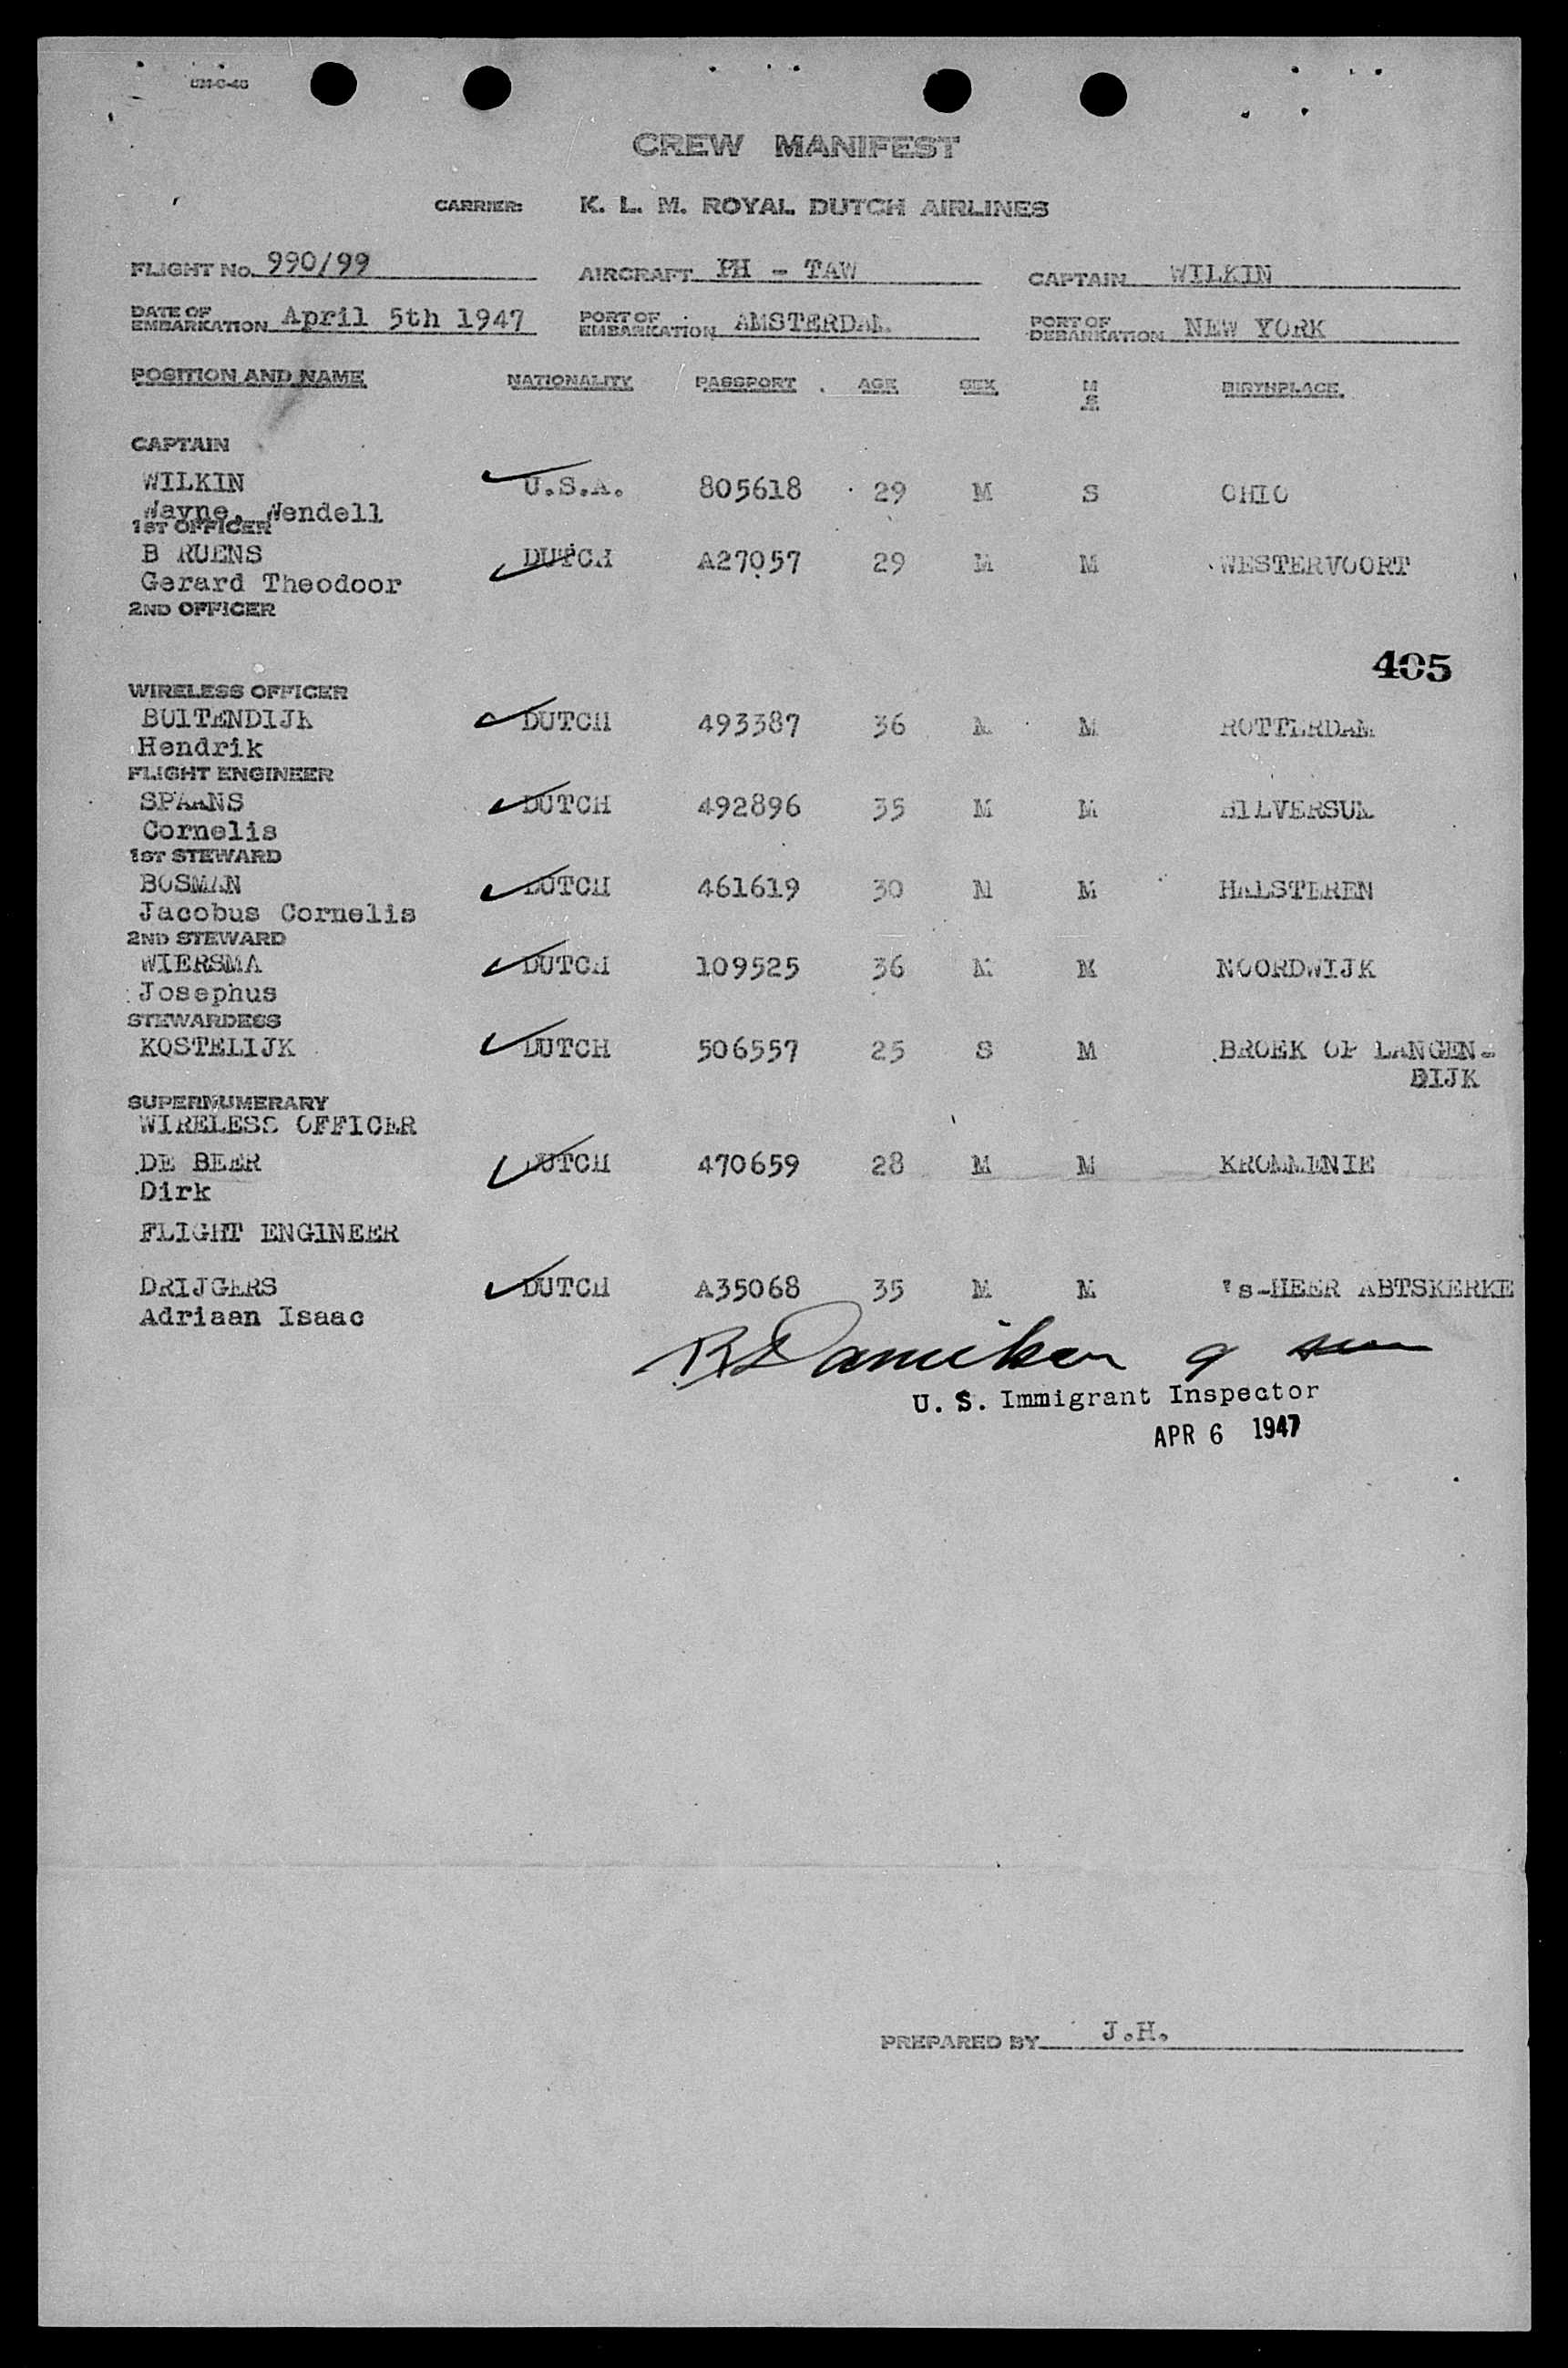 CREW MANIFEST
CARRIER: K. L. M. ROYAL DUTCH AIRLINES
FLIGHT No. 990/99 AIRCRAFT PH - TAW CAPTAIN WILKIN
DATE OF EMBARKATION April 5th 1947 PORT OF EMBARKATION AMSTERDAM PORT OF DEBARKATION NEW YORK
POSITION AND NAME NATIONALITY PASSPORT AGE SEX M S BIRTHPLACE
CAPTAIN
WILKIN U.S.A. 805618 29 M S OHIO
Wayne, Wendell
1ST OFFICER
B RUENS DUTCH A27057 29 M M WESTERVOORT
Gerard Theodoor
2ND OFFICER
405
WIRELESS OFFICER
BUITENDIJK DUTCH 493387 36 M M ROTTERDAM
Hendrik
FLIGHT ENGINEER
SPAANS DUTCH 492896 35 M M HILVERSUM
Cornelis
1ST STEWARD
BOSMAN DUTCH 461619 30 M M HALSTEREN
Jacobus Cornelis
2ND STEWARD
WIERSMA DUTCH 109525 36 M M NOORDWIJK
Josephus
STEWARDESS
KOSTELIJK DUTCH 506557 25 S M BROEK OP LANGEN-
DIJK
SUPERNUMERARY
WIRELESS OFFICER
DE BEER DUTCH 470659 28 M M KROMMENIE
Dirk
FLIGHT ENGINEER
DRIJGERS DUTCH A35068 35 M M 's-HEER ABTSKERKE
Adriaan Isaac
U. S. Immigrant Inspector
APR 6 1947
PREPARED BY J.H.